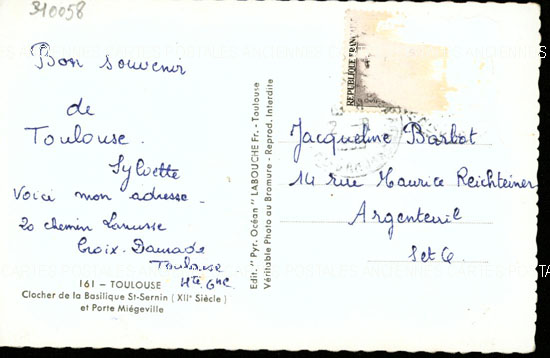 310058
Bon souvenir
de
Toulouse.
Sylvette
Voici mon adresse -
20 chemin Lanusse
Croix-Daurade
Toulouse
Hte. Gne
161 — TOULOUSE
Clocher de la Basilique St-Sernin (XIIe Siècle)
et Porte Miégeville
Edit. "Pyr. Océan" LABOUCHE Fr. - Toulouse
Véritable Photo au Bromure - Reprod. Interdite
REPUBLIQUE FRANÇAISE
Jacqueline Barbot
14 rue Maurice Reichteiner
Argenteuil
S et O.
CARTES POSTALES ANCIENNES